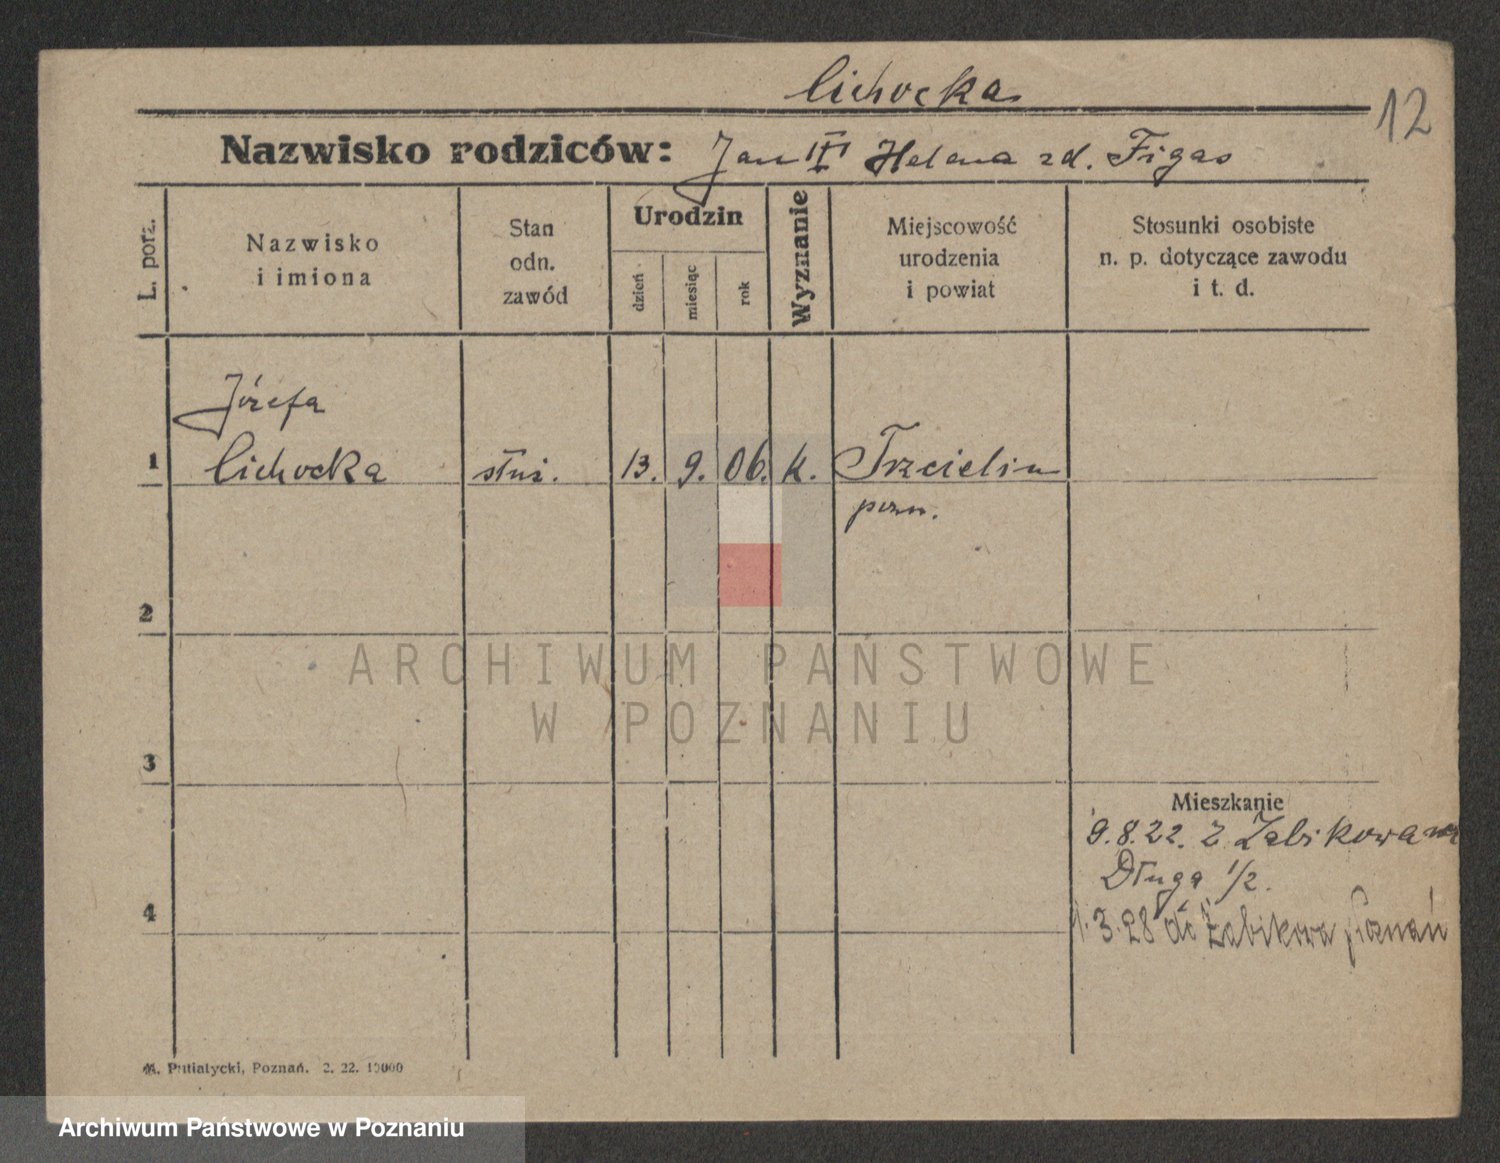 Cichocka
12
Nazwisko rodziców: Jan III Helena zd. Figas
L. porz.
Nazwisko
i imiona
Stan
odn.
zawód
Urodzin
dzień
miesiąc
rok
Wyznanie
Miejscowość
urodzenia
i powiat
Stosunki osobiste
n. p. dotyczące zawodu
i t. d.
Józefa
1 Cichocka służ. 13. 9. 06. k. Trzcielin
pozn.
2
ARCHIWUM PAŃSTWOWE
W POZNANIU
3
Mieszkanie
9.8.22. z Żabikowa
Długa 1/2.
4
1.3.28 do Żabikowa Poznań
M. Putiatycki, Poznań. 2. 22. 10000
Archiwum Państwowe w Poznaniu